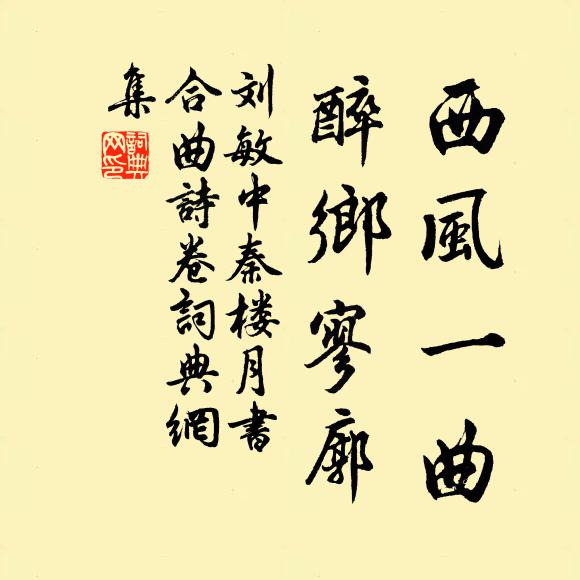 西風一曲
醉鄉寥廓
刘敏中秦楼月書
合曲詩卷詞典網
集
詞典網印